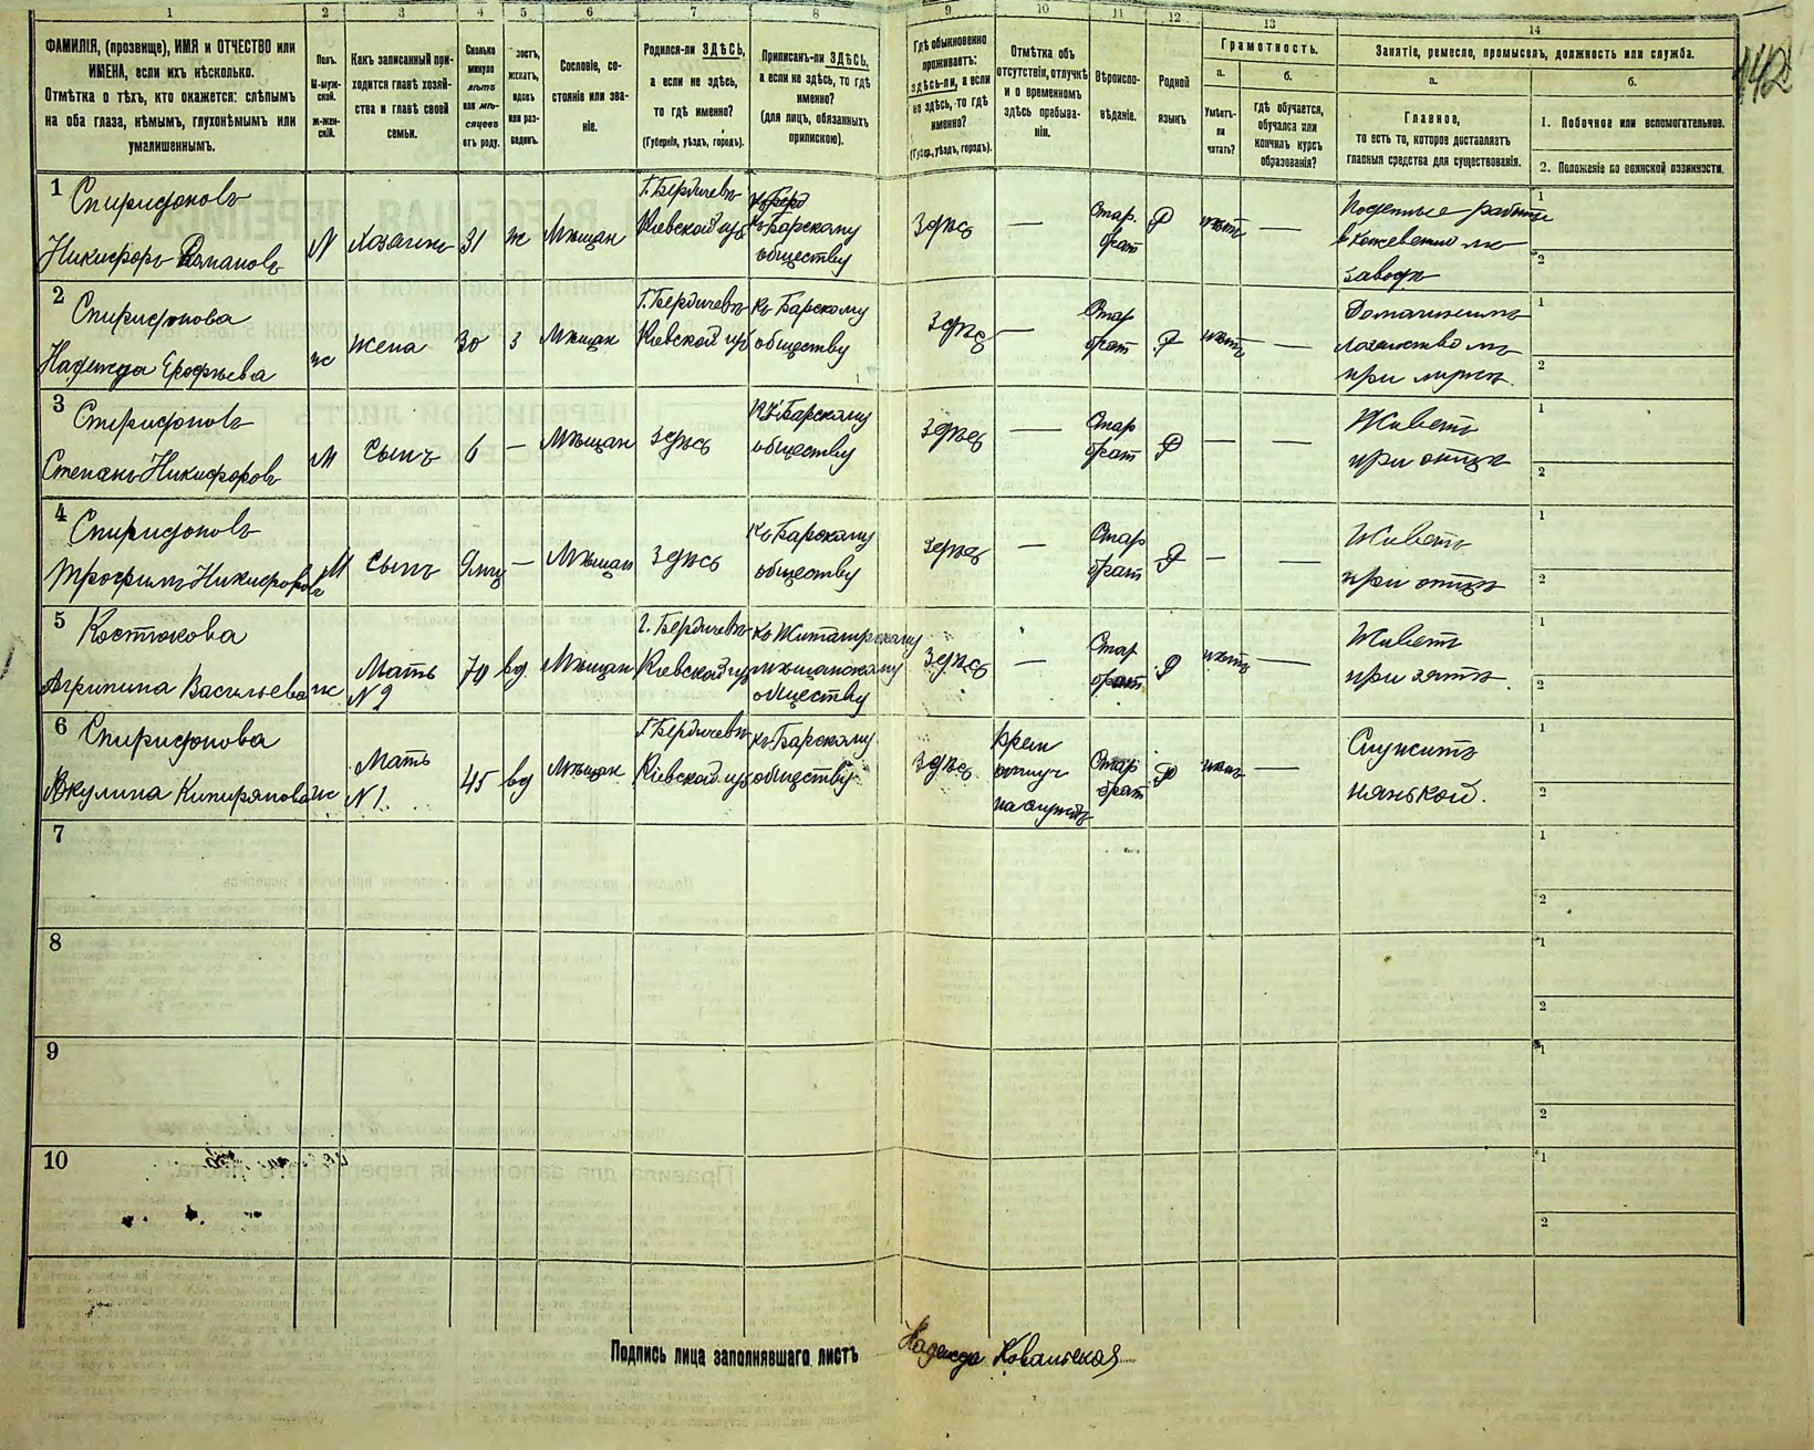 1 2 3 4 5 6 7 8 9 10 11 12 13 14
ФАМИЛІЯ, (прозвище), ИМЯ и ОТЧЕСТВО или
ИМЕНА, если ихъ нѣсколько.
Отмѣтка о тѣхъ, кто окажется: слѣпымъ
на оба глаза, нѣмымъ, глухонѣмымъ или
умалишеннымъ.
Полъ.
М-муж-
ской.
ж-жен-
скій.
Какъ записанный при-
ходится главѣ хозяй-
ства и главѣ своей
семьи.
Сколько
минуло
лѣтъ
или мѣ-
сяцевъ
отъ роду.
холостъ,
женатъ,
вдовъ
или раз-
веденъ.
Сословіе, со-
стояніе или зва-
ніе.
Родился-ли ЗДѢСЬ,
а если не здѣсь,
то гдѣ именно?
(Губернія, уѣздъ, городъ).
Приписанъ-ли ЗДѢСЬ,
а если не здѣсь, то гдѣ
именно?
(для лицъ, обязанныхъ
припискою).
Гдѣ обыкновенно
проживаетъ:
здѣсь-ли, а если
не здѣсь, то гдѣ
именно?
(Губер., уѣздъ, городъ).
Отмѣтка объ
отсутствіи, отлучкѣ
и о временномъ
здѣсь пребыва-
ніи.
Вѣроиспо-
вѣданіе.
Родной
языкъ
Грамотность.
а.
Умѣетъ-
ли
читать?
б.
гдѣ обучается,
обучался или
кончилъ курсъ
образованія?
Занятіе, ремесло, промыселъ, должность или служба.
а.
Главное,
то есть то, которое доставляетъ
главныя средства для существованія.
б.
1. Побочное или вспомогательное.
2. Положеніе по воинской повинности.
142
1 Спиридоновъ
Никифоръ Романовъ
М
Хозяинъ
31
ж
Мѣщан
Г. Бердичевъ
Кіевской губ
къ Берд
къ Барскому
обществу
Здѣсь
—
Стар.
обрат
Р
нѣтъ
—
Поденные работы
в кожевенномъ
заводѣ
1
2
2 Спиридонова
Надежда Ерофѣева
ж
жена
30
з
Мѣщан
Г. Бердичевъ
Кіевской губ
Къ Барскому
обществу
Здѣсь
—
Стар
обрат
Р
нѣтъ
—
Домашнимъ
хозяйствомъ
при мужѣ.
1
2
3 Спиридоновъ
Степанъ Никифоровъ
М
Сынъ
6
—
Мѣщан
Здѣсь
Къ Барскому
обществу
Здѣсь
—
Стар
обрат
Р
—
—
Живетъ
при отцѣ
1
2
4 Спиридоновъ
Трофимъ Никифоровъ
М
Сынъ
9 мц
—
Мѣщан
Здѣсь
Къ Барскому
обществу
Здѣсь
—
Стар
обрат
Р
—
—
Живетъ
при отцѣ
1
2
5 Костюкова
Агрипина Васильева
ж
Мать
N 2
70
вд.
Мѣщан
г. Бердичевъ
Кіевской губ
Къ Житомирскому
мѣщанскому
обществу
Здѣсь
—
Стар
обрат
Р
нѣтъ
—
Живетъ
при зятѣ
1
2
6 Спиридонова
Акулина Кипирянова
ж
Мать
N 1.
45
вд
Мѣщан
Г. Бердичевъ
Кіевской губ
къ Барскому
обществу
Здѣсь
Врем
отлуч
на службѣ
Стар
обрат
Р
нѣтъ
—
Служитъ
нянькой.
1
2
7
1
2
8
1
2
9
1
2
10
1
2
Подпись лица заполнявшаго листъ Надежда Ковальская